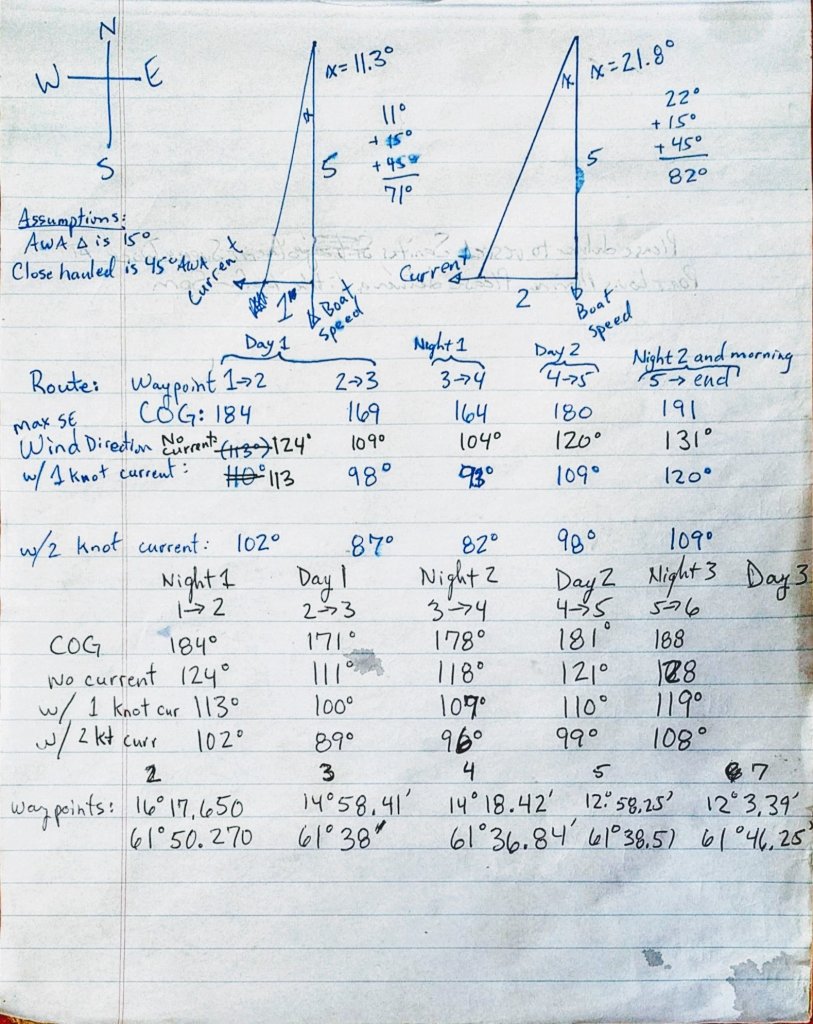 N
W E
S
x = 11.3°
x
11°
+ 15°
+ 45°
71°
5
1
Current
Boat Speed
x = 21.8°
x
22°
+ 15°
+ 45°
82°
5
2
Current
Boat Speed
Assumptions:
AWA Δ is 15°
Close hauled is 45° AWA
Day 1 Night 1 Day 2 Night 2 and morning
Route: Waypoint 1→2 2→3 3→4 4→5 5→end
COG: 184 169 164 180 191
max SE
Wind Direction No Current: (113°) 124° 109° 104° 120° 131°
w/ 1 knot current: 110° 113 98° 93° 109° 120°
w/2 knot current: 102° 87° 82° 98° 109°
Night 1 Day 1 Night 2 Day 2 Night 3 Day 3
1→2 2→3 3→4 4→5 5→6
COG 184° 171° 178° 181° 188
No current 124° 111° 118° 121° 128
w/ 1 knot cur 113° 100° 107° 110° 119°
w/ 2kt curr 102° 89° 96° 99° 108°
2 3 4 5 7
waypoints: 16°17.650 14°58.41' 14°18.42' 12°58.25' 12°3.39'
61°50.270 61°38' 61°36.84' 61°38.51 61°46.25'